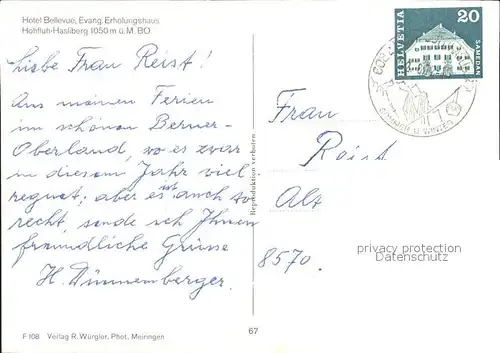 Hotel Bellevue, Evang. Erholungshaus
Hohfluh-Hasliberg 1050 m ü.M. BO
Liebe Frau Reist!
Aus meinen Ferien
im schönen Berner-
Oberland, wo es zwar
in diesem Jahr viel
regnet; aber es ist auch so
recht, sende ich Ihnen
freundliche Grüsse
H. Dünnenberger.
F 108 Verlag R. Würgler, Phot. Meiringen
67
Reproduktion verboten
HELVETIA
20
SAMEDAN
SOMMER U. WINTER
Frau
Reist
Alt
8570.
privacy protection
Datenschutz